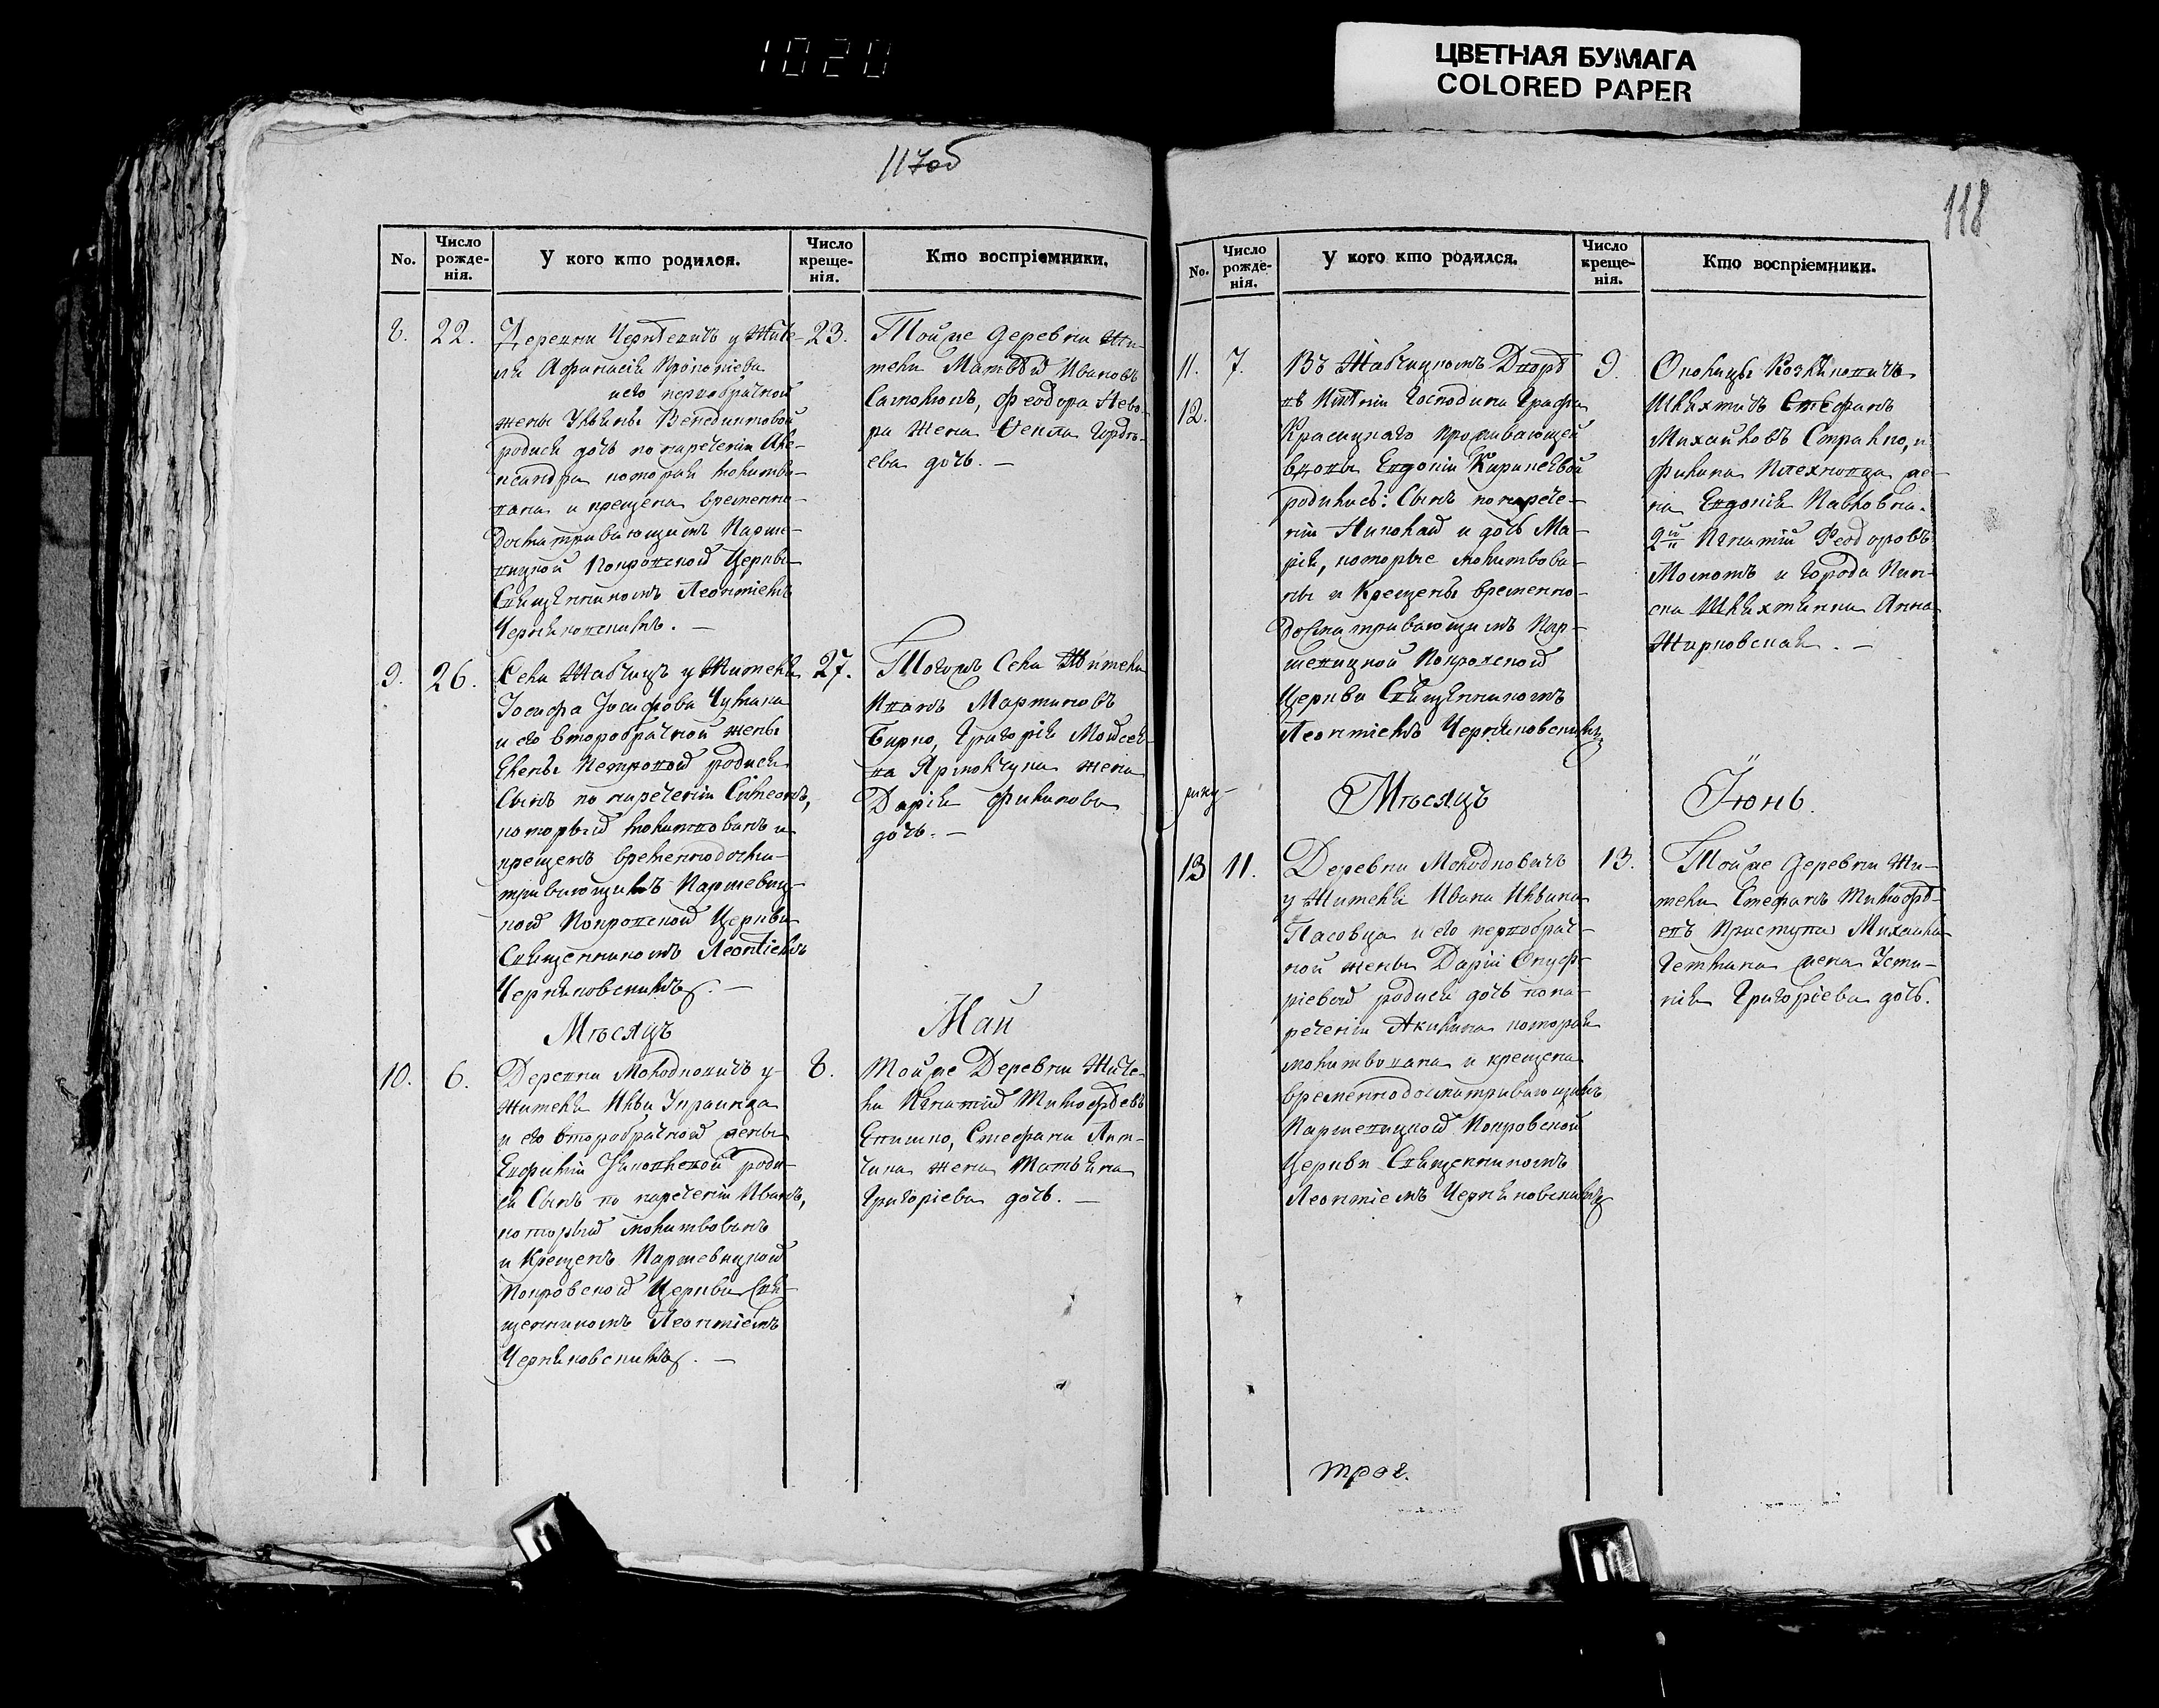 1020
ЦВЕТНАЯ БУМАГА
COLORED PAPER
117об
No.
Число рожде-нія.
У кого кто родился.
Число креще-нія.
Кто воспріемники.
8.
22.
Деревни у Жите-
ля Афанасія Прокопіева
и его первобрачной
жены Ульяны Венедиктовой
родися дочь по нареченіи Але-
ксандра которая молитво-
вана и крещена временно-
досматривающимъ Парше-
вицкой Покровской Церкви
Священникомъ Леонтіемъ
Черняковскимъ. —
23.
Тойже деревни Жи-
тели Матѳѣй Ивановъ
Ѳеодора
жена Ѳекла Гордѣ-
ева дочь. —
9.
26.
Села Жабчицъ у Жителя
Іосифа Іосифова
и его второбрачной жены
Елены Петровой родися
Сынъ по нареченіи Симеонъ,
который молитвованъ и
крещенъ временнодосма-
тривающимъ Паршевиц-
кой Покровской Церкви
Священникомъ Леонтіемъ
Черняковскимъ. —
27.
Тогожъ Села Жители
Иванъ Мартиновъ
Бирко, Григорія Моисее-
ва жена
Дарія Филипова
дочь. —
Мѣсяцъ
Май
10.
6.
Деревни Молодковичъ у
Жителя Ильи
и его второбрачной жены
Евфиміи Яковлевой роди-
ся Сынъ по нареченіи Иванъ,
который молитвованъ
и Крещенъ Паршевицкой
Покровской Церкви Свя-
щенникомъ Леонтіемъ
Черняковскимъ. —
8.
Тойже Деревни Жите-
ли Игнатій Тимофѣевъ
Стефана
жена Татьяна
Григоріева дочь. —
118
No.
Число рожде-нія.
У кого кто родился.
Число креще-нія.
Кто воспріемники.
11.
7.
12.
Въ Жабчицкомъ Дворѣ
въ Имѣніи Господина Графа
Красицкаго проживающей
вдовы Евдокіи
родились: Сынъ по нарече-
ніи Николай и дочь Ма-
рія, которые молитвова-
ны и Крещены временно-
досматривающимъ Пар-
шевицкой Покровской
Церкви Священникомъ
Леонтіемъ Черняковскимъ
9.
Околицы
Шляхтичъ Стефанъ
Михайловъ
же-
на Евдокія Павловна.
2й Игнатій Ѳеодоровъ
и города Пин-
ска Шляхтянка Анна
Жирковская. —
Мѣсяцъ
Іюнь.
13
11.
Деревни Молодковичъ
у Жителя Ивана Ильина
и его первобрач-
ной жены Даріи Онуф-
ріевой родися дочь по на-
реченіи Акилина которая
молитвована и крещена
временнодосматривающимъ
Паршевицкой Покровской
Церкви Священникомъ
Леонтіемъ Черняковскимъ
13.
Тойже деревни Жи-
тели Стефанъ Тимофѣ-
евъ Приступа Михаила
жена Усти-
нія Григоріева дочь.